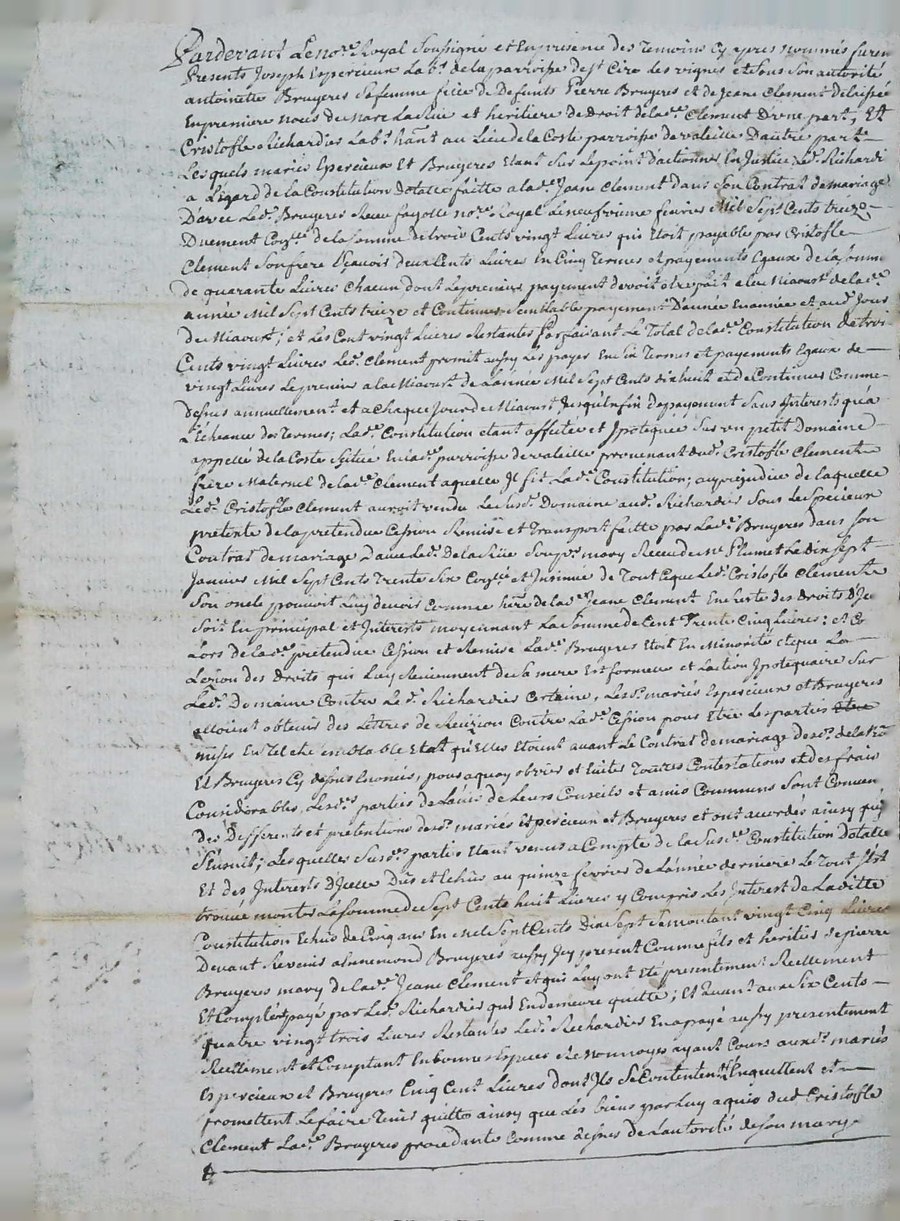 Pardevant Le no.re Royal Soussigné et En presence des Temoins Cy apres nommés furen
Presents Joseph Espercieux Lab.r de la parroisse de S.t Cire Les vignes et sous son autorité
antoinette Bruyeres sa femme fille de Defunts Pierre Bruyeres et de Jeane Clement delaissée
En premiere nous de Marc La Rüe et heritiere de Droit de la d.e Clement D'vne part; Et
Cristofle Richardies Lab.r hânt au Lieu de la Coste parroisse de valeille D'autre part
Les quels mariés Espercieux Et Bruyeres Etant Sur Le point d'actionner En Justice Le d. Richardi
a L'egard de la Constitution Dotalle faitte a la d.e Jeane Clement dans Son Contrat de mariage
D'avec Le d. Bruyeres Receu fagotte no.re Royal Le neufvieme fevrier Mil Sept Cents treize
Duement de la Somme de trois Cents vingt Livres qui Etoit payable par Cristofle
Clement Son frere Scavoir deux Cents Livres En Cinq Termes et payements Egaux de la Somm
de quarante Livres Chacun dont Le premier payement devoit être fait a la Miaoust de la d.e
année Mil Sept Cents treize et Continuer Semblable payement D'année En année et aud. Jour
de Miaoust; et Les Cent vingt Livres Restantes parfaisant Le Total de la d.e Constitution de troi
Cents vingt Livres Le d. Clement promit aussy Les payer En Six Termes et payements Egaux de
vingt Livres Le premier a la Miaoust de L'année Mil Sept Cents dixhuit et de Continuer Comme
dessus annuellement et a Chaque Jour de Miaoust Jusqu'a Enfin de payement Sans Interests qu'a
L'écheance des Termes; La d.e Constitution etant affectée et Ipotequée Sur un petit Domaine
appellé de la Coste Scitué En la d.e parroisse de valeille provenant dud. Cristofle Clement
frère Maternel de la d.e Clement aquelle Il fit La d.e Constitution; au prejudice de laquelle
Le d. Cristofle Clement auroit vendu Le Sus d. Domaine aud. Richardies Sous Le Specieux
pretexte de la pretendue Cession Remise et Transport faitte par La d.e Bruyeres dans Son
Contrat de mariage D'avec Le d. de la Rüe Son pr. mary Receu de M.e Plumet Le dix Sept
Janvier Mil Sept Cents Trente Six et Insinué de Tout Ce que Le d. Cristofle Clement
Son oncle pouvoit Luy devoir Comme here de la d.e Jeane Clement En Reste des Droits D'Je
Soit En principal et Interests moyennant La Somme de Cent Trente Cinq Livres: et Co
Lors de la d.e pretendue Cession et Remise La d.e Bruyeres Etoit En Minorité et que La
Lezion des Droits qui Luy Reviennent de sa mere Est formelle et L'action Ipotequaire Sur
Le d. Domaine Contre Le d. Richardies Certaine, Les d. mariés Espercieux et Bruyeres
alloient obtenir des Lettres de Recizion Contre La d.e Cession pour Etre Les parties
mises En Tel et Semblable Etat qu'Elles Etoient avant Le Contrat de mariage des d. de la Rüe
Et Bruyeres Cy dessus Enoncé, pour a quoy obvier et Eviter Toutes Contestations et des frais
Considerables, Les d. parties de L'avis de Leurs Conseils et amis Communs Sont Conven
des Differents et pretentions des d. mariés Espercieux et Bruyeres et ont accordés ainsy qu'
S'Ensuit; Lesquelles Sus d. parties Etant venues a Compte de la Sus d.e Constitution Dotalle
Et des Interests D'Jcelle Dûs et Echûs au quinze fevrier de L'année derniere Le Tout S'est
trouvé monter La Somme de Sept Cents huit Livres y Compris Les Interest de La ditte
Constitution Echus de Cinq ans En Mil Sept Cents Dix Sept Se montant vingt Cinq Livres
Devant Revenir a Bruyeres aussy Jcy present Comme fils et heritier de pierre
Bruyeres mary de la d.e Jeane Clement et qui Luy ont Eté presentement Reellement
Et Comptés et payé par Le d. Richardies qui En demeure quitte; Et Quant aux Six Cents
quatre vingt trois Livres Restantes Le d. Richardies En a payé aussy presentement
Reellement et Comptant En bonnes Especes de monnoyes ayant Cours aux d. mariés
Espercieux et Bruyeres Cinq Cent Livres dont Ils Se Contentent L'En quittent et
promettent Le faire Tenir quitte ainsy que Les biens par Luy aquis dud. Cristofle
Clement La d.e Bruyeres procedante Comme dessus de L'autorité de Son mary.